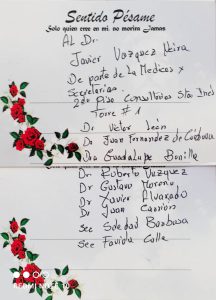 Sentido Pésame
Solo quien cree en mí, no morira Jamas
Al Dr
Javier Vazquez Neira
De parte de la Medicos y
Secretarias.
2do Piso Consultorios Sta Ines
Torre # 1
Dr Victor León
Dr Juan Fernandez de Cordova
Dra Guadalupe Bonilla
Dr Roberto Vazquez
Dr Gustavo Moreno
Dr Xavier Alvarado
Dr Juan Carrion
Sec Soledad Barbosa
See Favida Calle